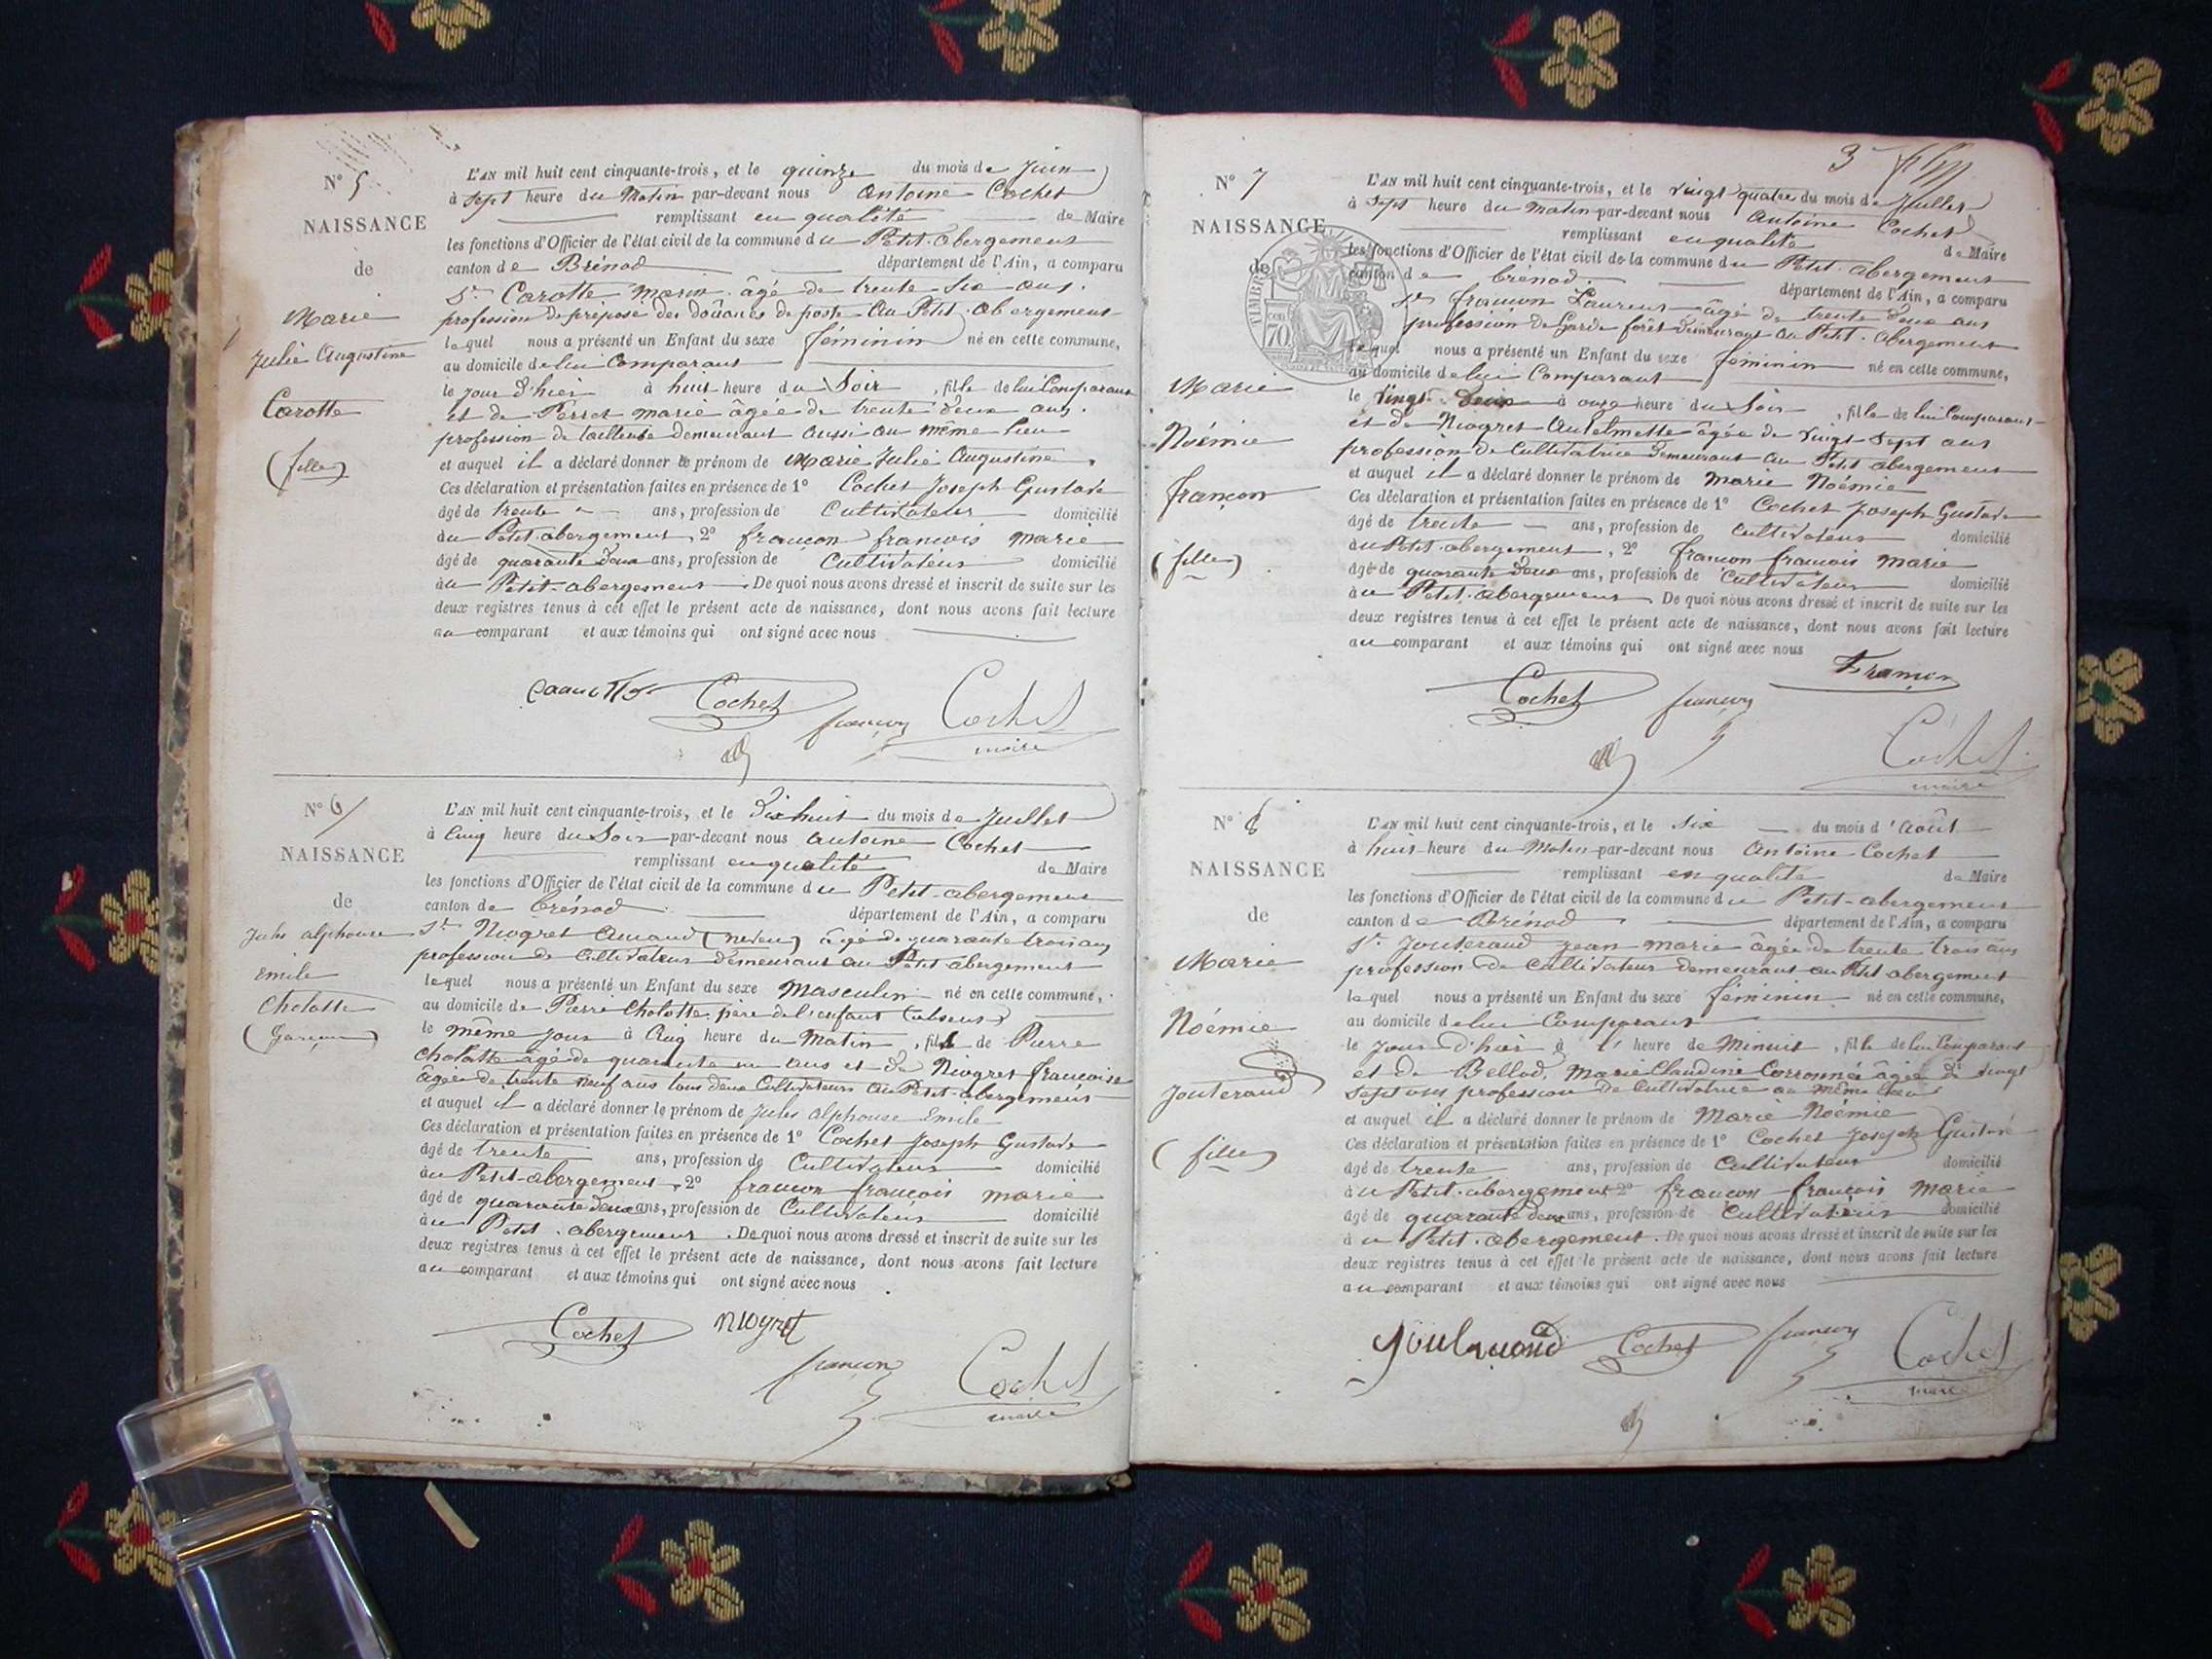 N° 5
NAISSANCE
de
Marie
Julie Augustine
Carotte
(fille)
L'AN mil huit cent cinquante-trois, et le quinze du mois de Juin
à sept heure du Matin par-devant nous Antoine Cochet
remplissant en qualité de Maire
les fonctions d'Officier de l'état civil de la commune du Petit-abergement
canton de Brénod département de l'Ain, a comparu
Sr. Carotte Marin âgé de trente-six ans.
profession de préposé des douanes de poste au Petit-abergement
lequel nous a présenté un Enfant du sexe féminin né en cette commune,
au domicile de lui Comparant
le jour d'hier à huit heure du Soir, fille de lui Comparant
et de Perret marie âgée de trente deux ans.
profession de tailleuse demeurant aussi au même lieu
et auquel il a déclaré donner le prénom de Marie Julie Augustine.
Ces déclaration et présentation faites en présence de 1° Cochet Joseph Gustave
âgé de trente ans, profession de Cultivateur domicilié
au Petit-abergement, 2° françon françois marie
âgé de quarante deux ans, profession de Cultivateur domicilié
au Petit-abergement. De quoi nous avons dressé et inscrit de suite sur les
deux registres tenus à cet effet le présent acte de naissance, dont nous avons fait lecture
au comparant et aux témoins qui ont signé avec nous
Cochet
françon
Cochet
maire
N° 6
NAISSANCE
de
Jules alphonse
Emile
Cholatte
(Garçon)
L'AN mil huit cent cinquante-trois, et le Dix huit du mois de Juillet
à Cinq heure du Soir par-devant nous Antoine Cochet
remplissant en qualité de Maire
les fonctions d'Officier de l'état civil de la commune du Petit-abergement
canton de brénod département de l'Ain, a comparu
Sr. Niogret Amand (neveu) âgé de quarante trois ans
profession de Cultivateur demeurant au Petit abergement
lequel nous a présenté un Enfant du sexe Masculin né en cette commune,
au domicile de Pierre Cholatte père de l'enfant (absent)
le même jour à Cinq heure du Matin, fils de Pierre
Cholatte âgé de quarante un ans et de Niogret françoise
âgée de trente neuf ans tous deux Cultivateurs au Petit-abergement
et auquel il a déclaré donner le prénom de Jules alphonse Emile
Ces déclaration et présentation faites en présence de 1° Cochet Joseph Gustave
âgé de trente ans, profession de Cultivateur domicilié
au Petit-abergement, 2° françon françois marie
âgé de quarante deux ans, profession de Cultivateur domicilié
au Petit-abergement. De quoi nous avons dressé et inscrit de suite sur les
deux registres tenus à cet effet le présent acte de naissance, dont nous avons fait lecture
au comparant et aux témoins qui ont signé avec nous
Cochet
niogret
françon
Cochet
maire
3
N° 7
NAISSANCE
de
TIMBRE
70
Marie
Noémie
françon
(fille)
L'AN mil huit cent cinquante-trois, et le vingt quatre du mois de Juillet
à sept heure du matin par-devant nous Antoine Cochet
remplissant en qualité de Maire
les fonctions d'Officier de l'état civil de la commune du Petit-abergement
canton de brénod département de l'Ain, a comparu
Sr françon Laurent âgé de trente deux ans
profession de Garde forêt demeurant au Petit-abergement
lequel nous a présenté un Enfant du sexe féminin né en cette commune,
au domicile de lui Comparant
le vingt-deux à onze heure du Soir, fille de lui Comparant
et de Niogret Antelmette âgée de vingt sept ans
profession de Cultivatrice demeurant au Petit abergement
et auquel il a déclaré donner le prénom de Marie Noémie
Ces déclaration et présentation faites en présence de 1° Cochet Joseph Gustave
âgé de trente ans, profession de Cultivateur domicilié
au Petit-abergement, 2° françon françois marie
âgé de quarante deux ans, profession de Cultivateur domicilié
au Petit-abergement. De quoi nous avons dressé et inscrit de suite sur les
deux registres tenus à cet effet le présent acte de naissance, dont nous avons fait lecture
au comparant et aux témoins qui ont signé avec nous
Françon
Cochet
françon
Cochet
maire
N° 8
NAISSANCE
de
Marie
Noémie
Jouteraud
(fille)
L'AN mil huit cent cinquante-trois, et le six du mois d'Août
à huit heure du Matin par-devant nous Antoine Cochet
remplissant en qualité de Maire
les fonctions d'Officier de l'état civil de la commune du Petit-abergement
canton de Brénod département de l'Ain, a comparu
Sr. Jouteraud Jean marie âgée de trente trois ans
profession de Cultivateur demeurant au Petit abergement
lequel nous a présenté un Enfant du sexe féminin né en cette commune,
au domicile de lui Comparant
le jour d'hier à l' heure de Minuit, fille de lui Comparant
et de Bellod, Marie Claudine Corronnée âgée de vingt
sept ans profession de Cultivatrice au même lieu
et auquel il a déclaré donner le prénom de Marie Noémie
Ces déclaration et présentation faites en présence de 1° Cochet Joseph Gustave
âgé de trente ans, profession de Cultivateur domicilié
au Petit-abergement 2° françon françois marie
âgé de quarante deux ans, profession de Cultivateur domicilié
au Petit-abergement. De quoi nous avons dressé et inscrit de suite sur les
deux registres tenus à cet effet le présent acte de naissance, dont nous avons fait lecture
au comparant et aux témoins qui ont signé avec nous
Cochet
françon
Cochet
maire